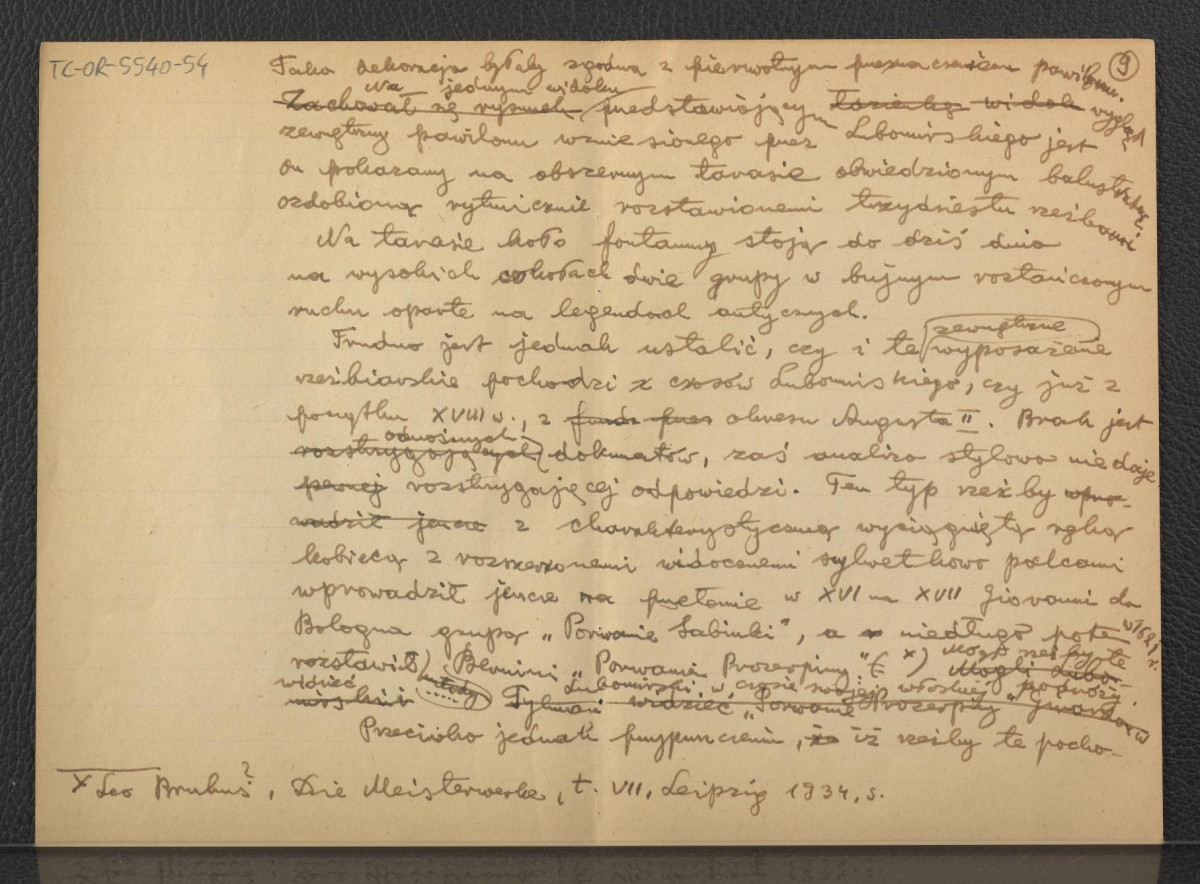 TC-OR-5540-54
9
Taka dekoracja byłaby zgodna z pierwotnym przeznaczeniem pawilonu.
Na jednym widoku
Zachował się rysunek przedstawiającym łazienkę widok wygląd
zewnętrzny pawilonu wzniesionego przez Lubomirskiego jest
on pokazany na obszernym tarasie obwiedzionym balustradą
ozdobioną rytmicznie rozstawionemi trzydziestu rzeźbami.
Na tarasie koło fontanny stoją do dziś dnia
na wysokich cokołach dwie grupy w bujnym roztańczonym
ruchu oparte na legendach antycznych.
zewnętrzne
Trudno jest jednak ustalić, czy i te wyposażenie
rzeźbiarskie pochodzi z czasów Lubomirskiego, czy już z
początku XVIII w., z okresu Augusta II. Brak jest
odnośnych
rozstrzygających dokumentów, zaś analiza stylowa nie daje
pewnej rozstrzygającej odpowiedzi. Ten typ rzeźby wpro-
wadził jeszcze z charakterystyczną wyciągniętą ręką
kobiecą z rozszerzonemi widocznemi sylwetkowo palcami
wprowadził jeszcze na przełomie w XVI na XVII Giovanni da
Bologna grupą „Porwanie Sabinki", a niedługo potem
w 1621 r.
rozstawił Bernini „Porwanie Prozerpiny" (x) Mogli Lubo-
Mógł rzeźby te
widzieć młody Lubomirski w czasie swojej włoskiej podróży.
mirski Tylman widzieć „Porwanie Prozerpiny"
Przeciwko jednak przypuszczeniu, że iż rzeźby te pocho-
x Leo Bruhns?, Die Meisterwerke, t. VII, Leipzig 1934, s.